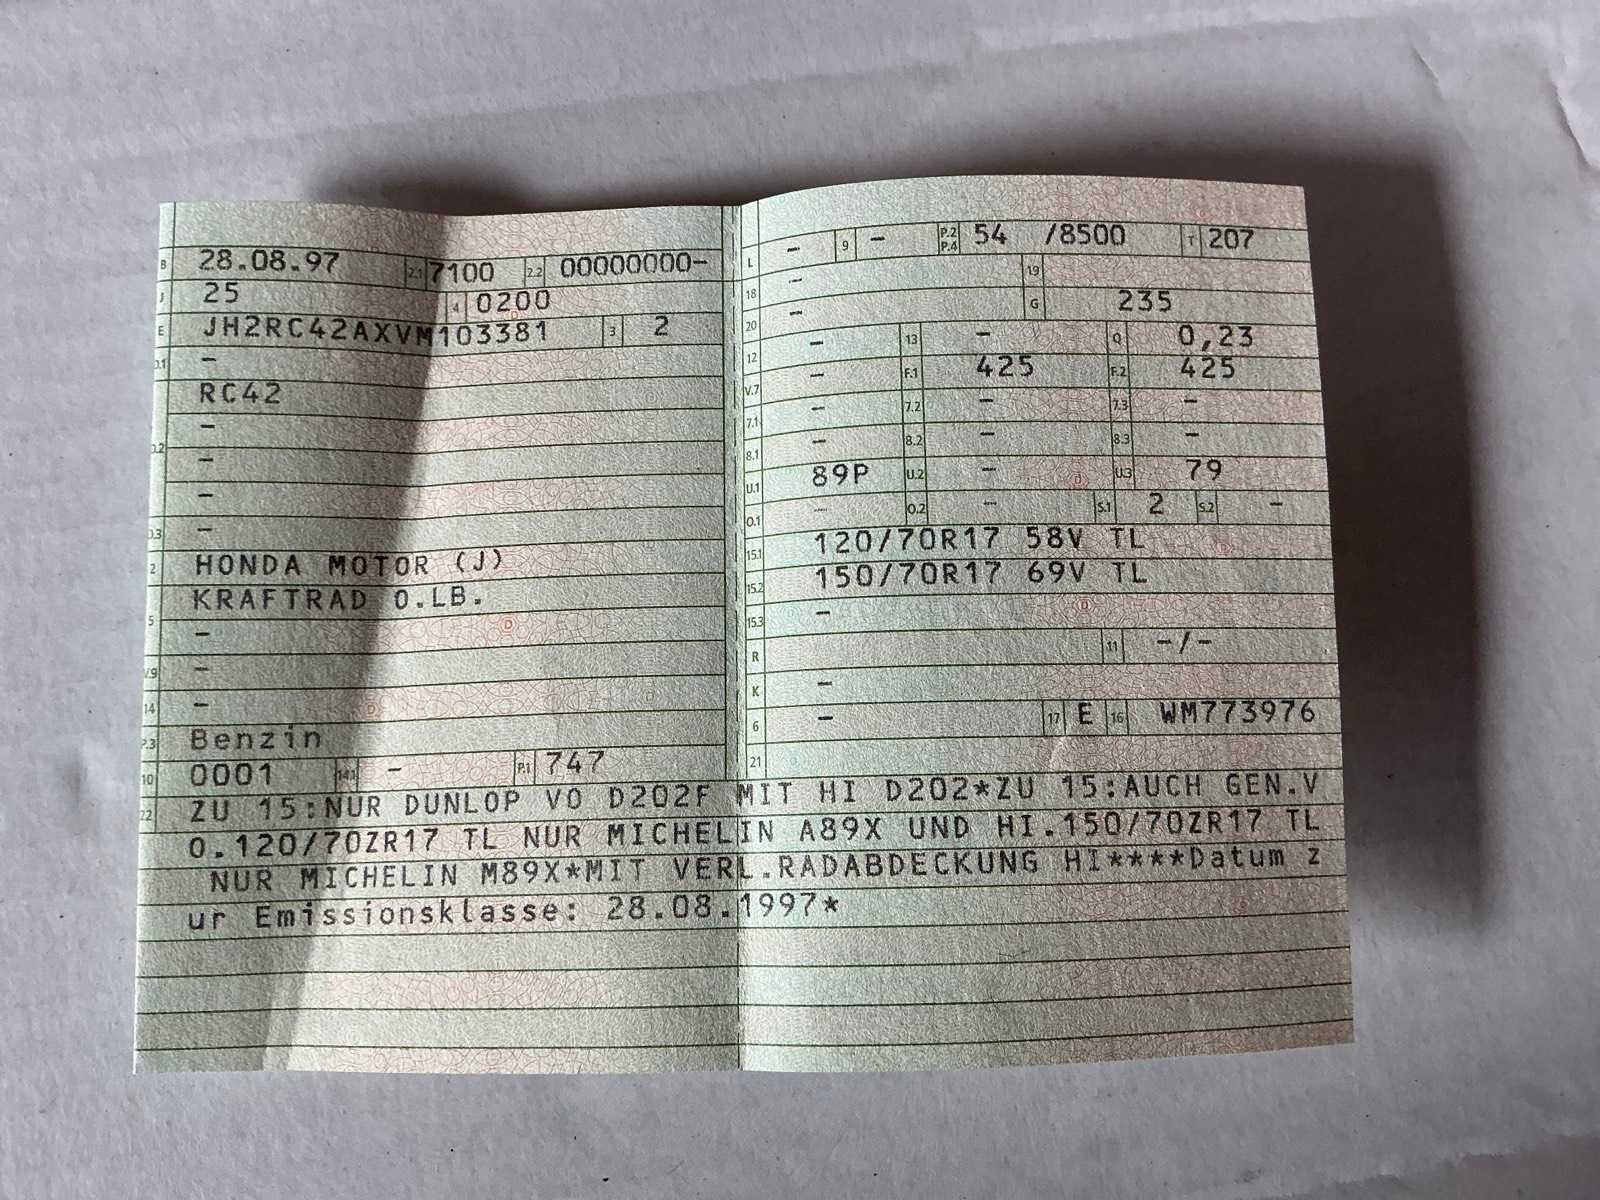 B 28.08.97 2.1 7100 2.2 00000000-
J 25 4 0200
E JH2RC42AXVM103381 3 2
D.1 -
RC42
-
D.2 -
-
D.3 -
2 HONDA MOTOR (J)
KRAFTRAD O.LB.
5 -
V.9 -
14 -
P.3 Benzin
10 0001 14.1 - P.1 747
L - 9 - P.2 P.4 54 /8500 T 207
18 - 19
20 - G 235
12 - 13 - Q 0,23
V.7 - F.1 425 F.2 425
7.1 - 7.2 - 7.3 -
8.1 - 8.2 - 8.3 -
U.1 89P U.2 - U.3 79
O.1 - O.2 - S.1 2 S.2 -
15.1 120/70R17 58V TL
15.2 150/70R17 69V TL
15.3 -
R 11 -/-
K -
6 - 17 E 16 WM773976
21
22 ZU 15:NUR DUNLOP VO D202F MIT HI D202*ZU 15:AUCH GEN.V
O.120/70ZR17 TL NUR MICHELIN A89X UND HI.150/70ZR17 TL
NUR MICHELIN M89X*MIT VERL.RADABDECKUNG HI****Datum z
ur Emissionsklasse: 28.08.1997*